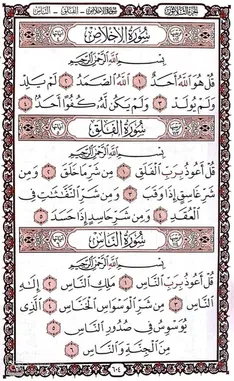 سورة الإخلاص - الفلق - الناس
سُورَةُ الإِخْلَاصِ
بِسْمِ اللَّهِ الرَّحْمَٰنِ الرَّحِيمِ
قُلْ هُوَ اللَّهُ أَحَدٌ ١ اللَّهُ الصَّمَدُ ٢ لَمْ يَلِدْ
وَلَمْ يُولَدْ ٣ وَلَمْ يَكُن لَّهُ كُفُوًا أَحَدٌ ٤
سُورَةُ الفَلَقِ
بِسْمِ اللَّهِ الرَّحْمَٰنِ الرَّحِيمِ
قُلْ أَعُوذُ بِرَبِّ الْفَلَقِ ١ مِن شَرِّ مَا خَلَقَ ٢ وَمِن
شَرِّ غَاسِقٍ إِذَا وَقَبَ ٣ وَمِن شَرِّ النَّفَّاثَاتِ فِي
الْعُقَدِ ٤ وَمِن شَرِّ حَاسِدٍ إِذَا حَسَدَ ٥
سُورَةُ النَّاسِ
بِسْمِ اللَّهِ الرَّحْمَٰنِ الرَّحِيمِ
قُلْ أَعُوذُ بِرَبِّ النَّاسِ ١ مَلِكِ النَّاسِ ٢ إِلَٰهِ
النَّاسِ ٣ مِن شَرِّ الْوَسْوَاسِ الْخَنَّاسِ ٤ الَّذِي
يُوَسْوِسُ فِي صُدُورِ النَّاسِ ٥
مِنَ الْجِنَّةِ وَالنَّاسِ ٦
٦٠٤